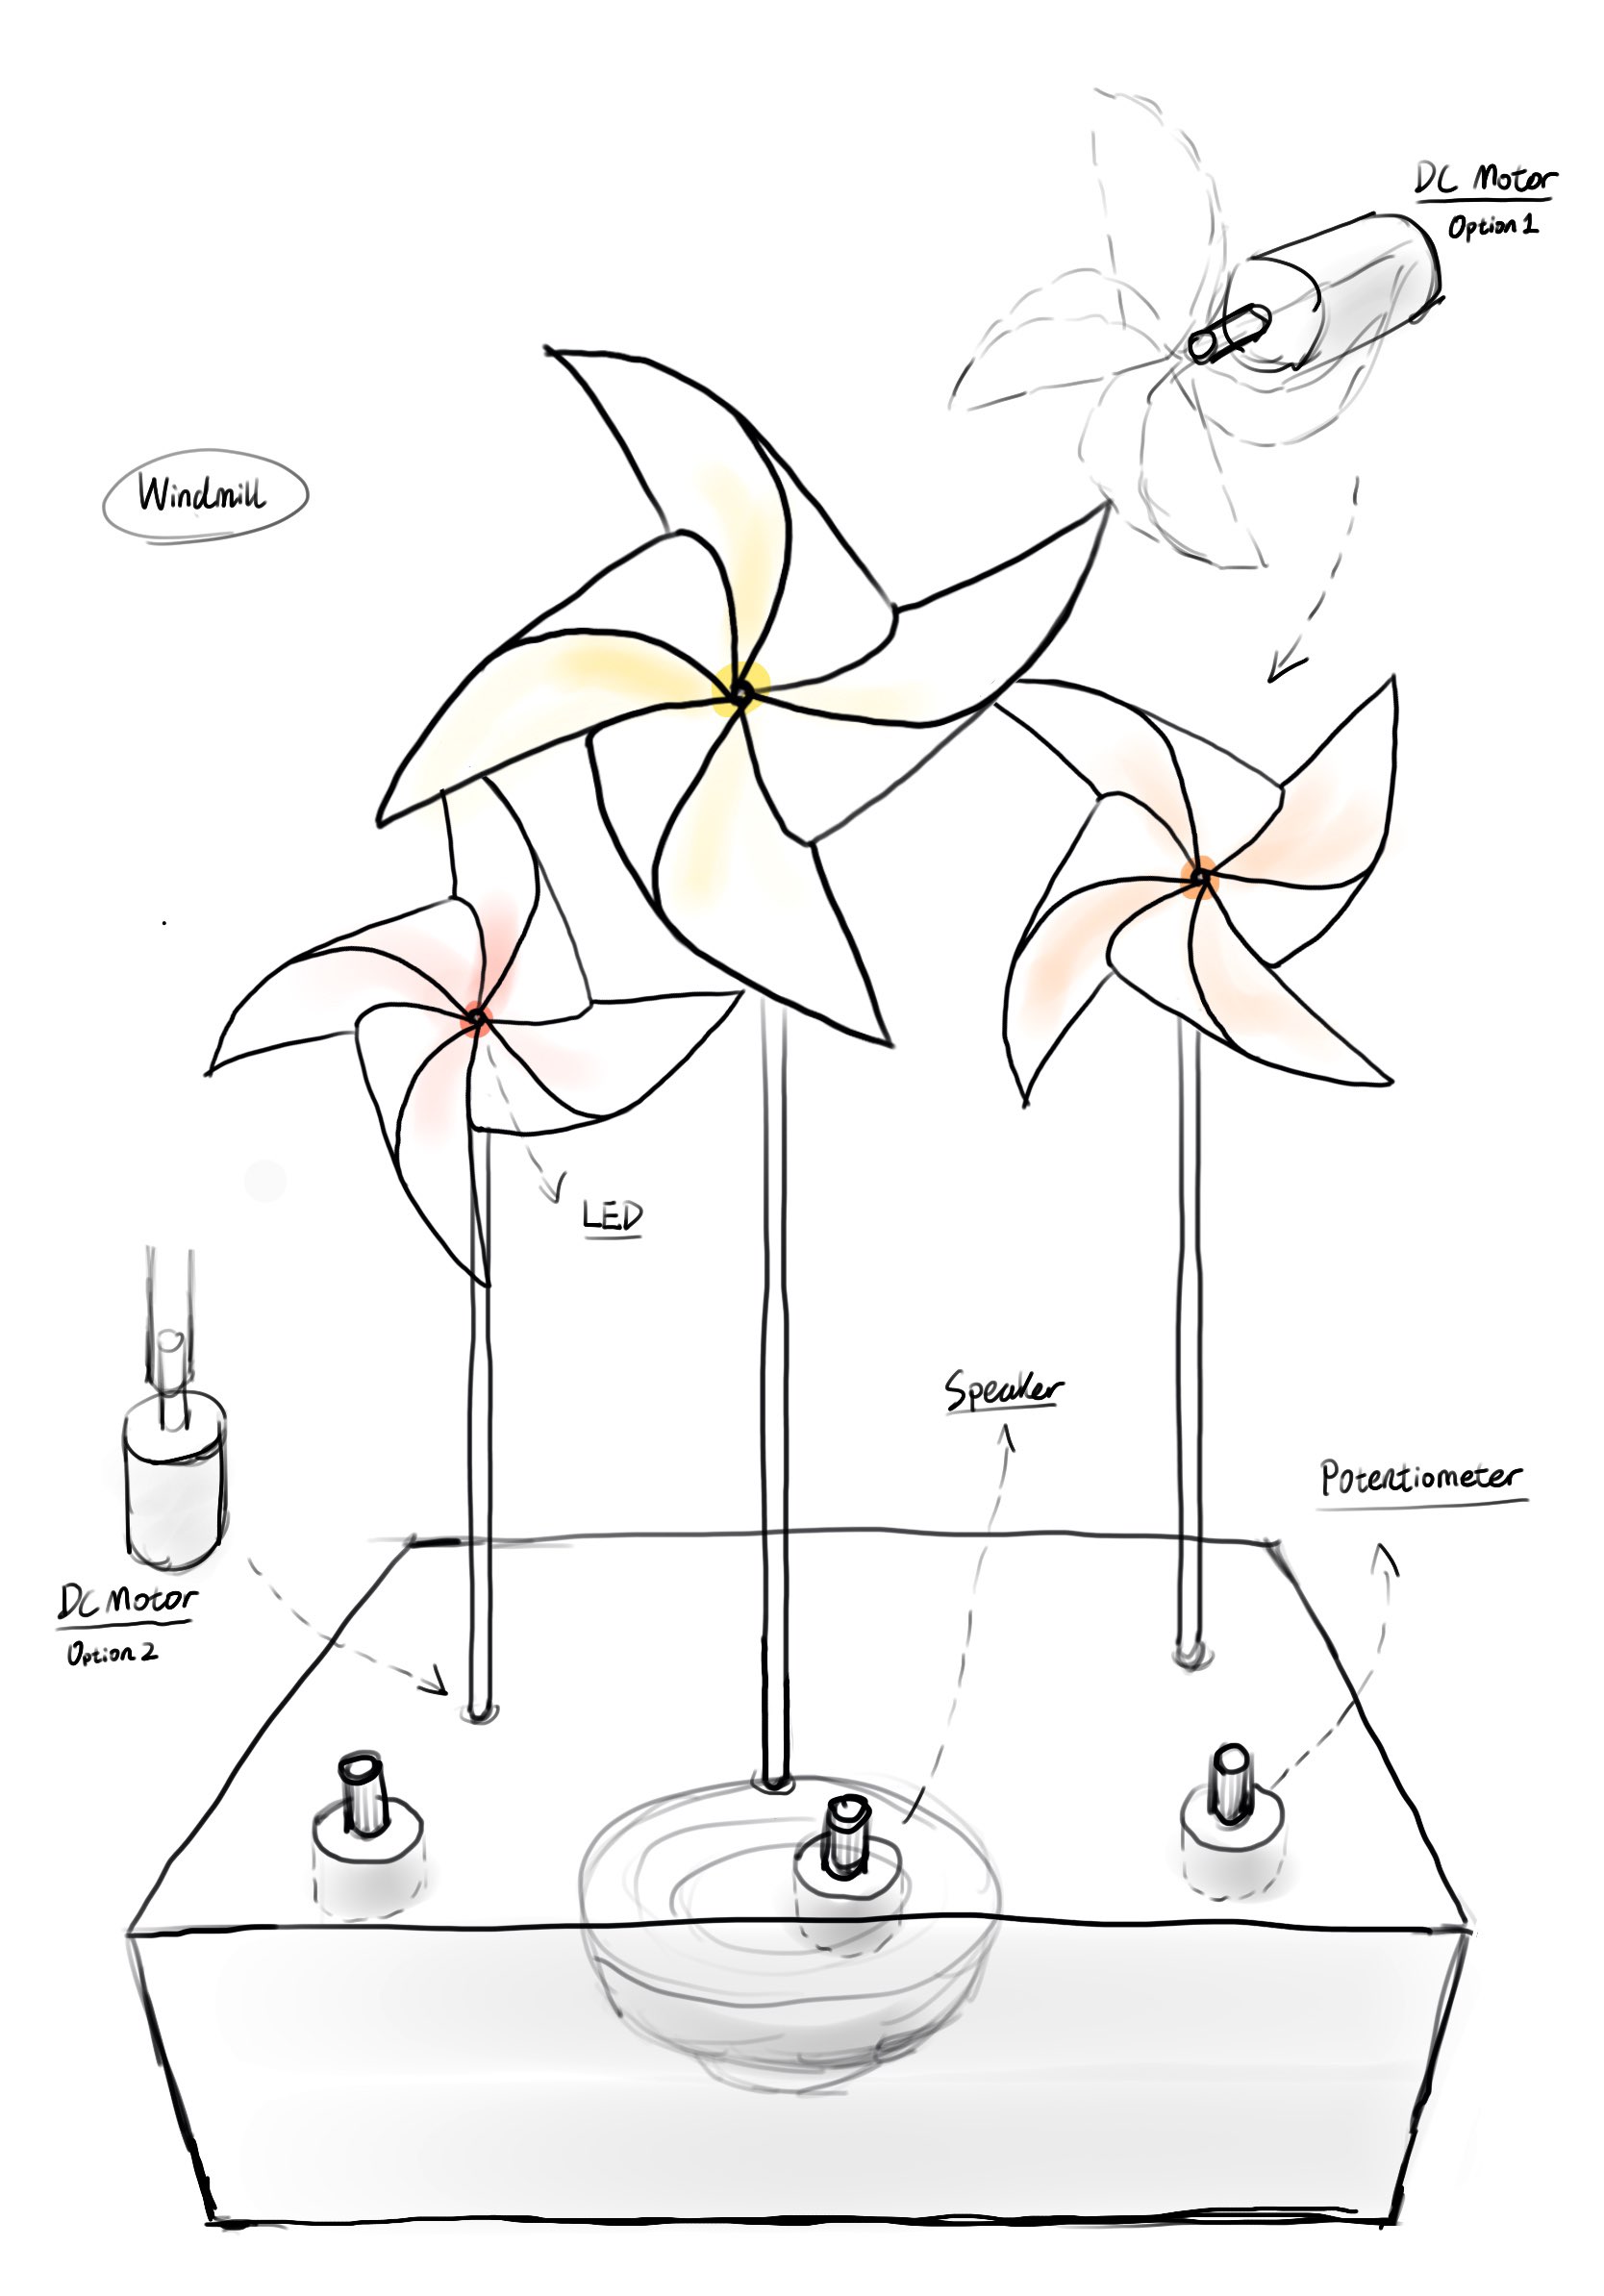 DC Motor
Option 1
Windmill
LED
Speaker
Potentiometer
DC Motor
Option 2